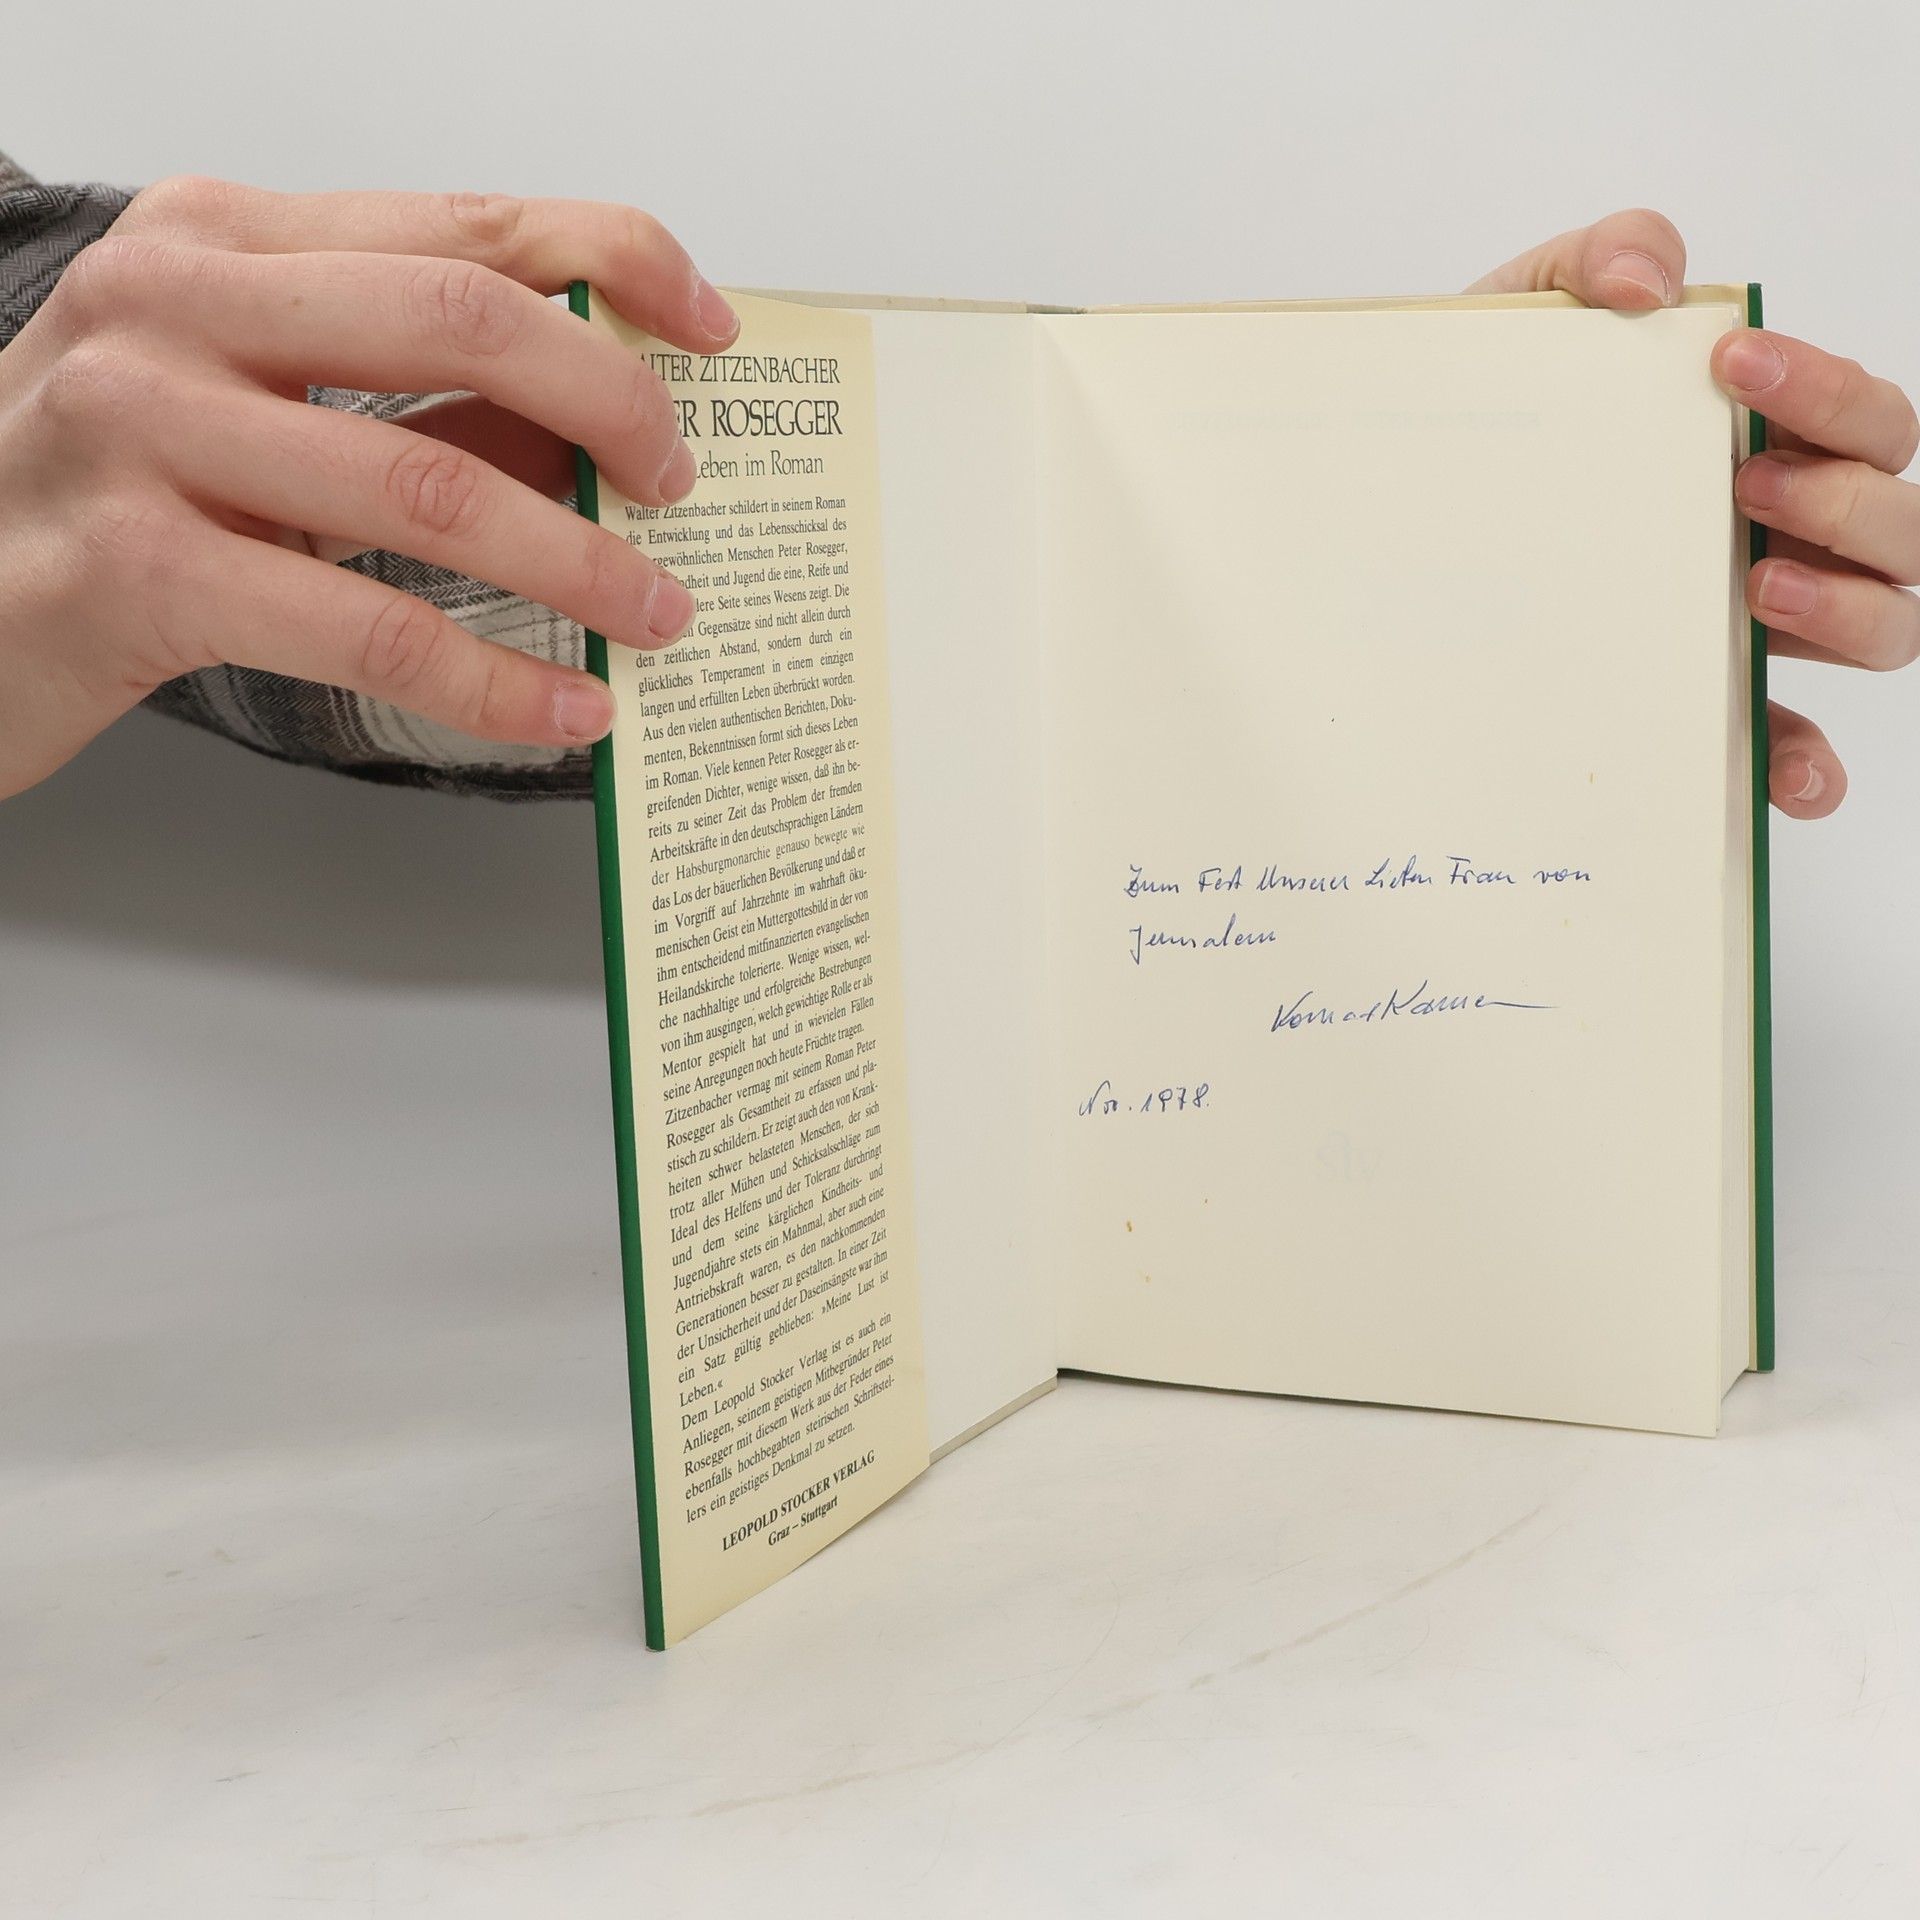 ALTER ZITZENBACHER
ER ROSEGGER
Leben im Roman
Walter Zitzenbacher schildert in seinem Roman
die Entwicklung und das Lebensschicksal des
rgewöhnlichen Menschen Peter Rosegger,
ndheit und Jugend die eine, Reife und
dere Seite seines Wesens zeigt. Die
en Gegensätze sind nicht allein durch
den zeitlichen Abstand, sondern durch ein
glückliches Temperament in einem einzigen
langen und erfüllten Leben überbrückt worden.
Aus den vielen authentischen Berichten, Doku-
menten, Bekenntnissen formt sich dieses Leben
im Roman. Viele kennen Peter Rosegger als er-
greifenden Dichter, wenige wissen, daß ihn be-
reits zu seiner Zeit das Problem der fremden
Arbeitskräfte in den deutschsprachigen Ländern
der Habsburgmonarchie genauso bewegte wie
das Los der bäuerlichen Bevölkerung und daß er
im Vorgriff auf Jahrzehnte im wahrhaft öku-
menischen Geist ein Muttergottesbild in der von
ihm entscheidend mitfinanzierten evangelischen
Heilandskirche tolerierte. Wenige wissen, wel-
che nachhaltige und erfolgreiche Bestrebungen
von ihm ausgingen, welch gewichtige Rolle er als
Mentor gespielt hat und in wievielen Fällen
seine Anregungen noch heute Früchte tragen.
Zitzenbacher vermag mit seinem Roman Peter
Rosegger als Gesamtheit zu erfassen und pla-
stisch zu schildern. Er zeigt auch den von Krank-
heiten schwer belasteten Menschen, der sich
trotz aller Mühen und Schicksalsschläge zum
Ideal des Helfens und der Toleranz durchringt
und dem seine kärglichen Kindheits- und
Jugendjahre stets ein Mahnmal, aber auch eine
Antriebskraft waren, es den nachkommenden
Generationen besser zu gestalten. In einer Zeit
der Unsicherheit und der Daseinsängste war ihm
ein Satz gültig geblieben: »Meine Lust ist
Leben.«
Dem Leopold Stocker Verlag ist es auch ein
Anliegen, seinem geistigen Mitbegründer Peter
Rosegger mit diesem Werk aus der Feder eines
ebenfalls hochbegabten steirischen Schriftstel-
lers ein geistiges Denkmal zu setzen.
LEOPOLD STOCKER VERLAG
Graz – Stuttgart
Zum Fest Unserer Lieben Frau von
Jerusalem
Nov. 1978.